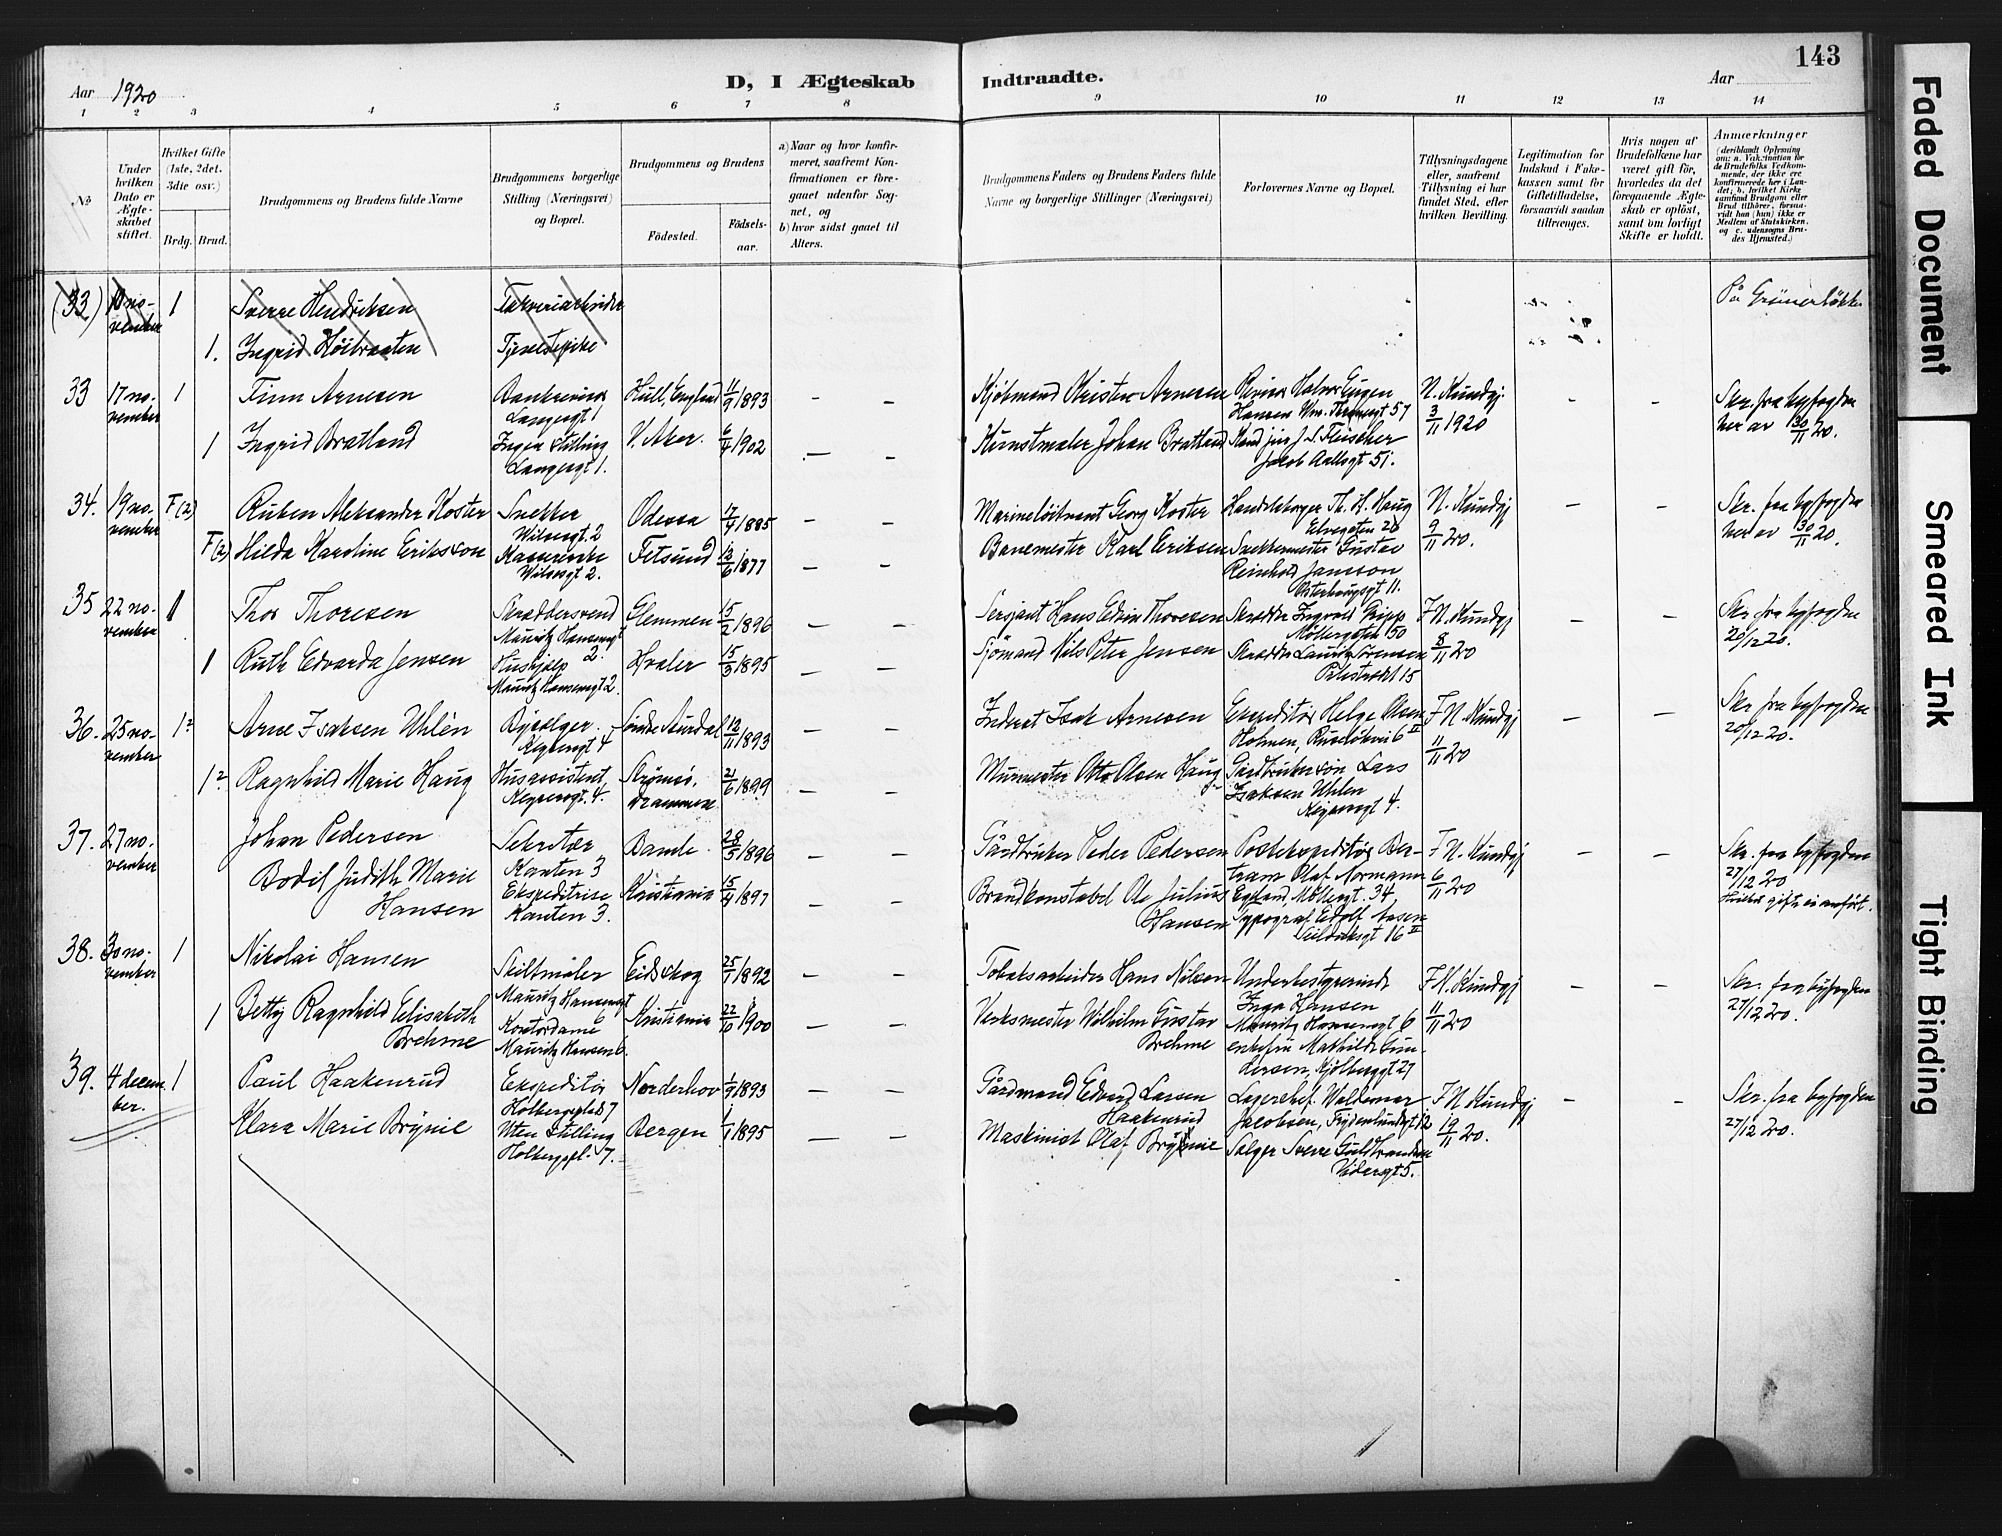 143
Aar 1920
D, I Ægteskab Indtraadte.
Aar
1 2 3 4 5 6 7 8 9 10 11 12 13 14
№
Under hvilken Dato er Ægte-skabet stiftet.
Hvilket Gifte (1ste, 2det, 3die osv.)
Brdg. Brud.
Brudgommens og Brudens fulde Navne
Brudgommens borgerlige Stilling (Næringsvei) og Bopæl.
Brudgommens og Brudens
Födested.
Födsels-aar.
a) Naar og hvor konfir-meret, saafremt Kon-firmationen er fore-gaaet udenfor Sog-net, og
b) hvor sidst gaaet til Alters.
Brudgommens Faders og Brudens Faders fulde Navne og borgerlige Stillinger (Næringsvei)
Forlovernes Navne og Bopæl.
Tillysningsdagene eller, saafremt Tillysning ei har fundet Sted, efter hvilken Bevilling.
Legitimation for Indskud i Enke-kassen samt for Giftetilladelse, forsaavidt saadan tiltrænges.
Hvis nogen af Brudefolkene har været gift för, hvorledes da det foregaaende Ægte-skab er oplöst, samt om lovligt Skifte er holdt.
Anmærkninger
(33) 13 no-vember 1 Sverre Hendriksen
På Grünerløkka
1. Ingrid Høibraaten Tjenestepike
33 17 no-vember 1 Finn Arnesen Bankrevisor Langesgt 1 Hull, England 11/9 1893 - -
Kjøbmand Kristen Arnesen Revisor Halvor Eugen Hansen Wm. Thranesgt 57 N. Kundgj. 3/11 1920 - - Skr. fra byfogden her av 30/11 20.
1 Ingrid Bratland Ingen stilling Langesgt 1. V. Aker. 6/4 1902 - -
Kunstmaler Johan Bratland Stud. jur. J. S. Fleischer Jacob Aallsgt 51.
34. 19 no-vember F(2) Ruben Aleksander Koster Snekker Wilsesgt. 2 Odessa 17/4 1885 - -
Marineløitnant Georg Koster Handelsborger Th. H. Haug Elvegaten 26 N. Kundgj 9/11 20. - - Skr. fra byfogden her av 30/11 20.
F(2) Hilda Karoline Eriksson Wilsesgt 2. Fetsund 13/6 1877 - -
Banemester Karl Eriksen Snekkermester Gustav Reinhold Jansson Osterhausgt 11.
35 22 no-vember 1 Thor Thoresen Skræddersvend Mauritz Hansensgt 2. Glemmen 15/2 1896 - -
Sersjant Hans Edvin Thoresen Skrædder Ingvald Gripp Møllergaten 50 F N. Kundgj 8/11 20 - - Skr. fra byfogden 20/12 20.
1 Ruth Edvarda Jensen Hushjælp Mauritz Hansensgt 2. Hvaler 15/3 1895 - -
Sjømand Nils Peter Jensen Skrædder Lauritz Sørensen Pilestrædet 15
36. 25 no-vember 1² Arne Isaksen Uhlèn Bysælger Keysersgt 4 Søndre Aurdal 12/11 1893 - -
Inderst Isak Arnesen Ekspeditør Helge Olsen Holmen, Ruseløkvei 6 II F N. Kundgj 11/11 20 - - Skr. fra byfogden 20/12 20.
1² Ragnhild Marie Haug Husassistent Keysersgt. 4. Strømsø, Drammen 21/6 1899 - -
Murmester Otto Olsen Haug Gårdbrukersøn Lars Isaksen Uhlen Keysersgt 4.
37. 27 no-vember Johan Pedersen Sekretær Kanten 3 Bamle 28/5 1896 - -
Gårdbruker Peder Pedersen Postekspeditør Ber-tram Olaf Normann Egeland, Møllergt. 34 F N. Kundgj 6/11 20 - - Skr. fra byfogden 27/12 20
hvilket gifte ei anført.
Bodil Judith Marie Hansen Ekspeditrise Kanten 3. Kristiania 15/4 1897 - -
Brandkonstabel Ole Julius Hansen Typograf Edolf Aasen 16 II
38. 30 no-vember 1 Nikolai Hansen Skiltmaler Mauritz Hansensgt 6 Eidskog 25/1 1892 - -
Tobaksarbeider Hans Nilsen Underbestyrerinde Inga Hansen Mauritz Hansensgt 6 F N. Kundgj 11/11 20 - - Skr. fra byfogden 27/12 20.
1 Betty Ragnhild Elisabeth Brehme Kontordame Mauritz Hansen 6. Kristiania 22/6 1900 - -
Verksmester Wilhelm Gustav Brehme enkefru Mathilde Gun-dersen, Kjølberggt 27
39. 4 decem-ber. 1 Paul Haakenrud Ekspeditør Holbergsplads 7 Norderhov 1/9 1893 - -
Gårdmand Edvard Larsen Haakenrud Lagerchef Waldemar Jacobsen, Frydenlundsgt 12 F N. Kundgj 19/11 20. - - Skr. fra byfogden 27/12 20.
Klara Marie Brynie Uten Stilling Holbergspl. 7. Bergen 1/1 1895 - -
Maskinist Olaf Brynie Sælger Sverre Guldbrandsen Vidarsgt 5.
Faded Document
Smeared Ink
Tight Binding